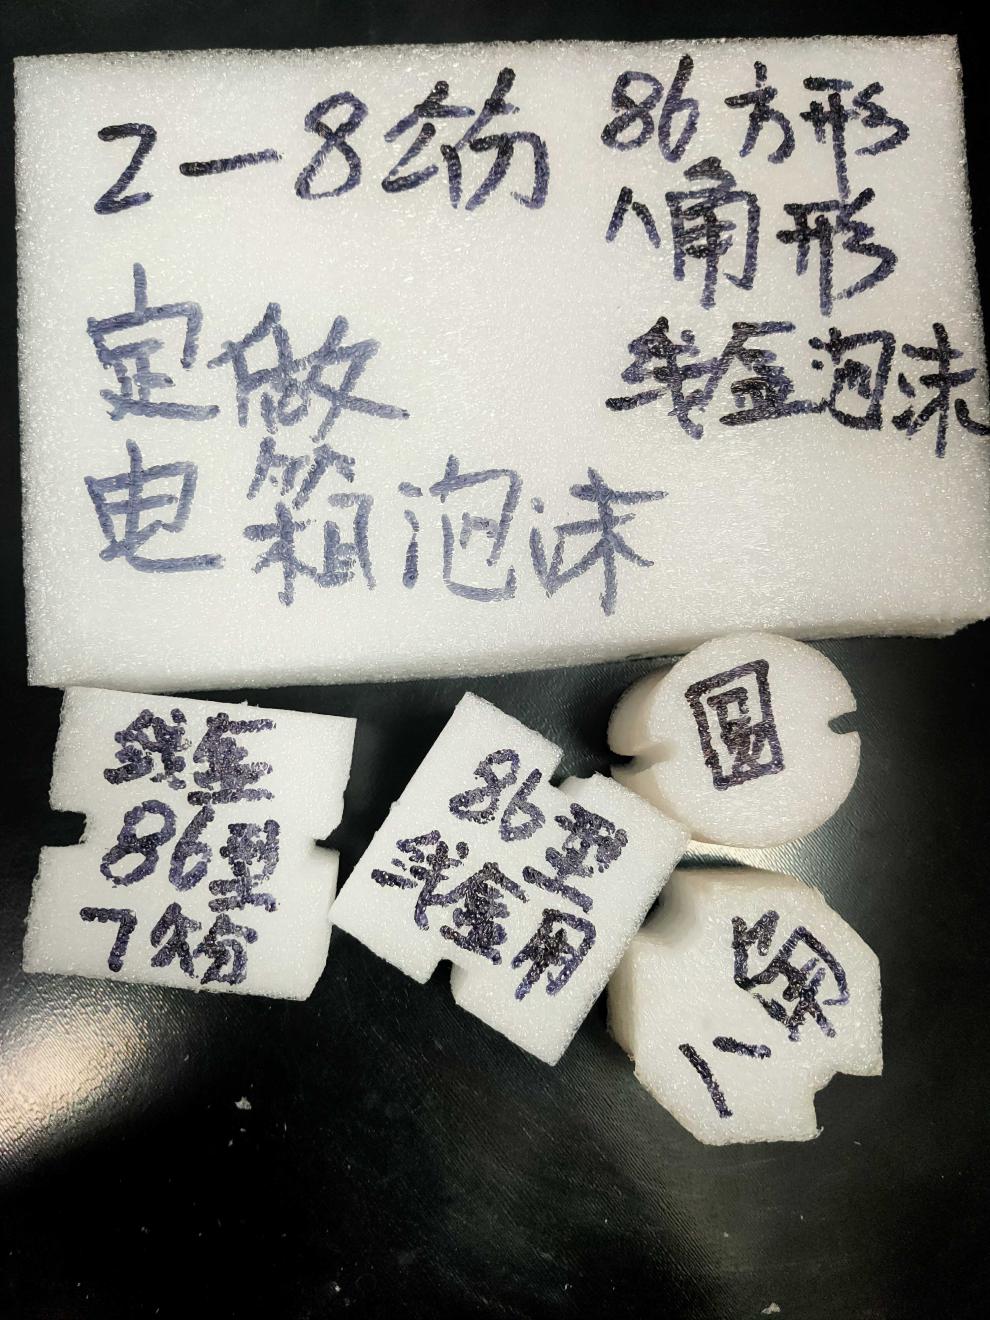 2—8公份
86方形
八角形
线盒泡沫
定做
电箱泡沫
线盒
86型
7公份
86型
线盒用
圆
八角